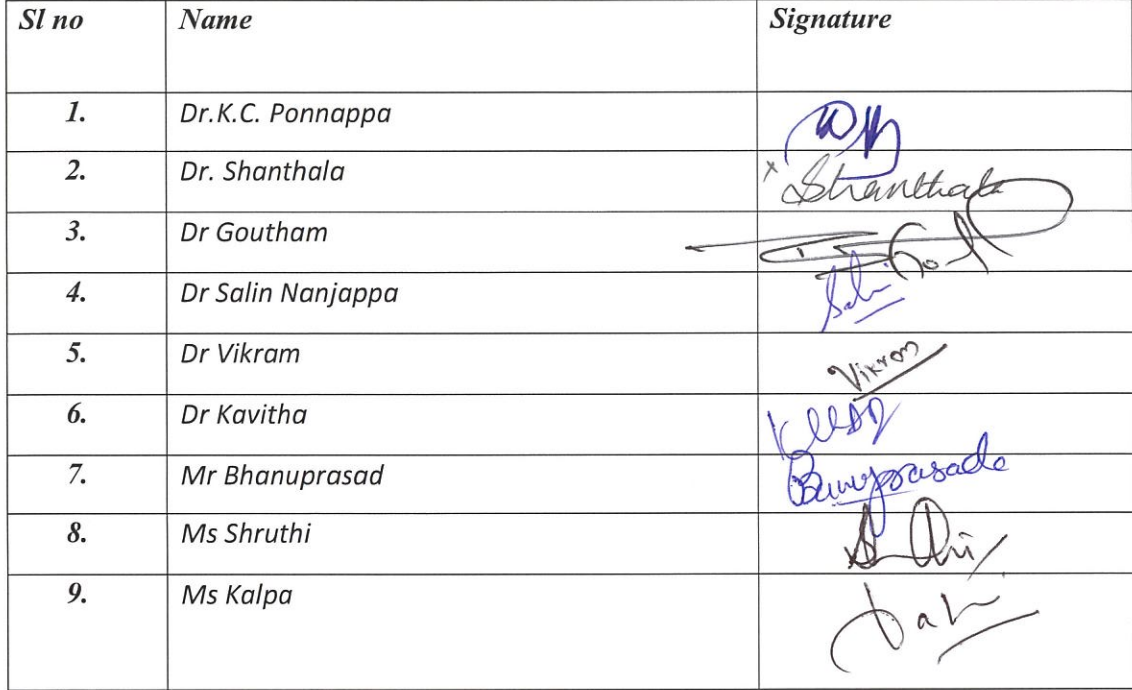 Sl no Name Signature
1. Dr.K.C. Ponnappa
2. Dr. Shanthala x Shanthala
3. Dr Goutham
4. Dr Salin Nanjappa
5. Dr Vikram Vikram
6. Dr Kavitha
7. Mr Bhanuprasad
8. Ms Shruthi
9. Ms Kalpa